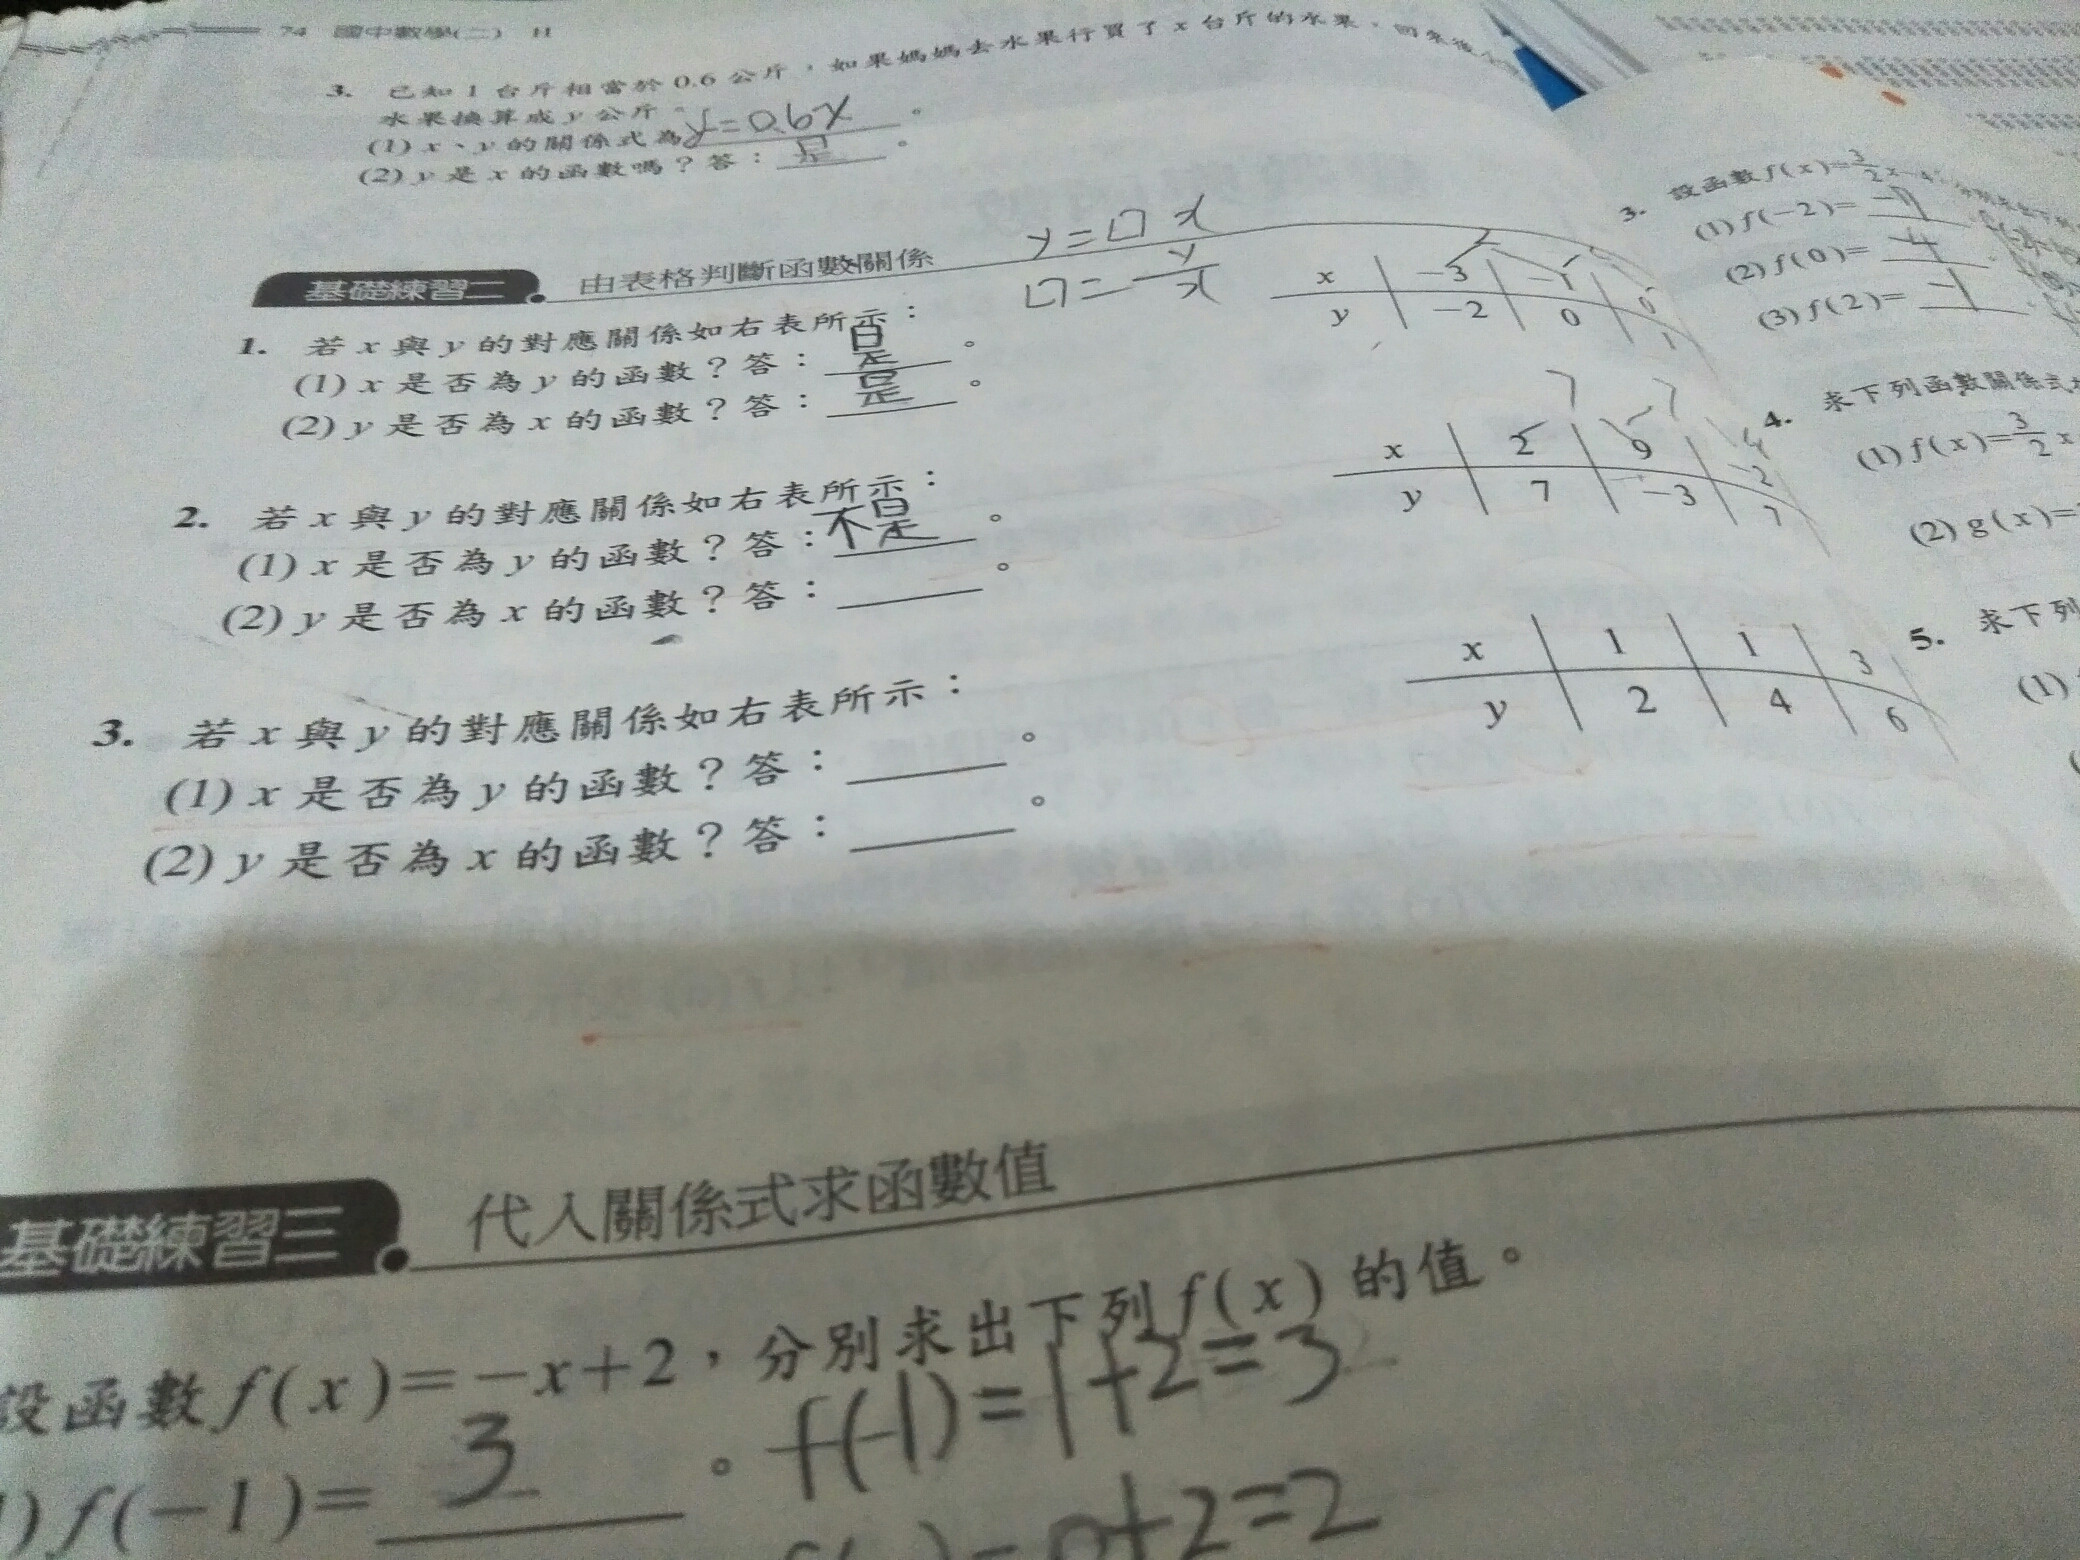 74 國中數學(二) H
3. 已知1台斤相當於0.6公斤，如果媽媽去水果行買了x台斤的水果，
水果換算成y公斤。
(1) x、y的關係式為 y=0.6x 。
(2) y是x的函數嗎？答： 是 。
基礎練習二 由表格判斷函數關係
y=□x
□=y/x
1. 若x與y的對應關係如右表所示：
(1) x是否為y的函數？答： 是 。
(2) y是否為x的函數？答： 是 。
x -3 -1 0
y -2 0 1
2. 若x與y的對應關係如右表所示：
(1) x是否為y的函數？答： 不是 。
(2) y是否為x的函數？答： 。
x 2 9 -2
y 7 -3 7
3. 若x與y的對應關係如右表所示：
(1) x是否為y的函數？答： 。
(2) y是否為x的函數？答： 。
x 1 1 3
y 2 4 6
基礎練習三 代入關係式求函數值
設函數f(x)=-x+2，分別求出下列f(x)的值。
)f(-1)= 3 。 f(-1)=1+2=3
=0+2=2
3. 設函數f(x)=3/2x-4
(1) f(-2)=
(2) f(0)= -4
(3) f(2)= -1
4. 求下列函數關係式
(1) f(x)=3/2x
(2) g(x)=
5. 求下列
(1)